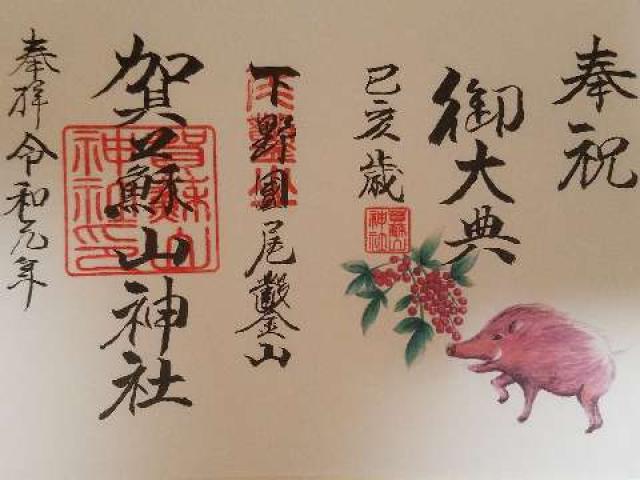 奉祝
御大典
己亥歳
下野國尾鑿山
賀蘇山神社
奉拝 令和元年
賀蘇山
神社印